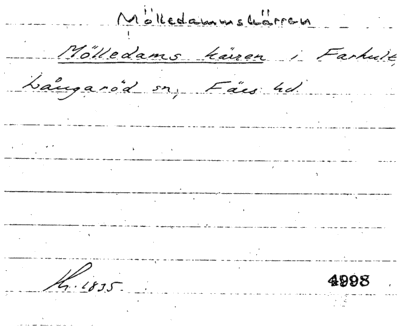 Mölledammskärren
Mölledams kärren i Farhult,
Långaröd sn, Färs hd.
Kr. 1835.
4998